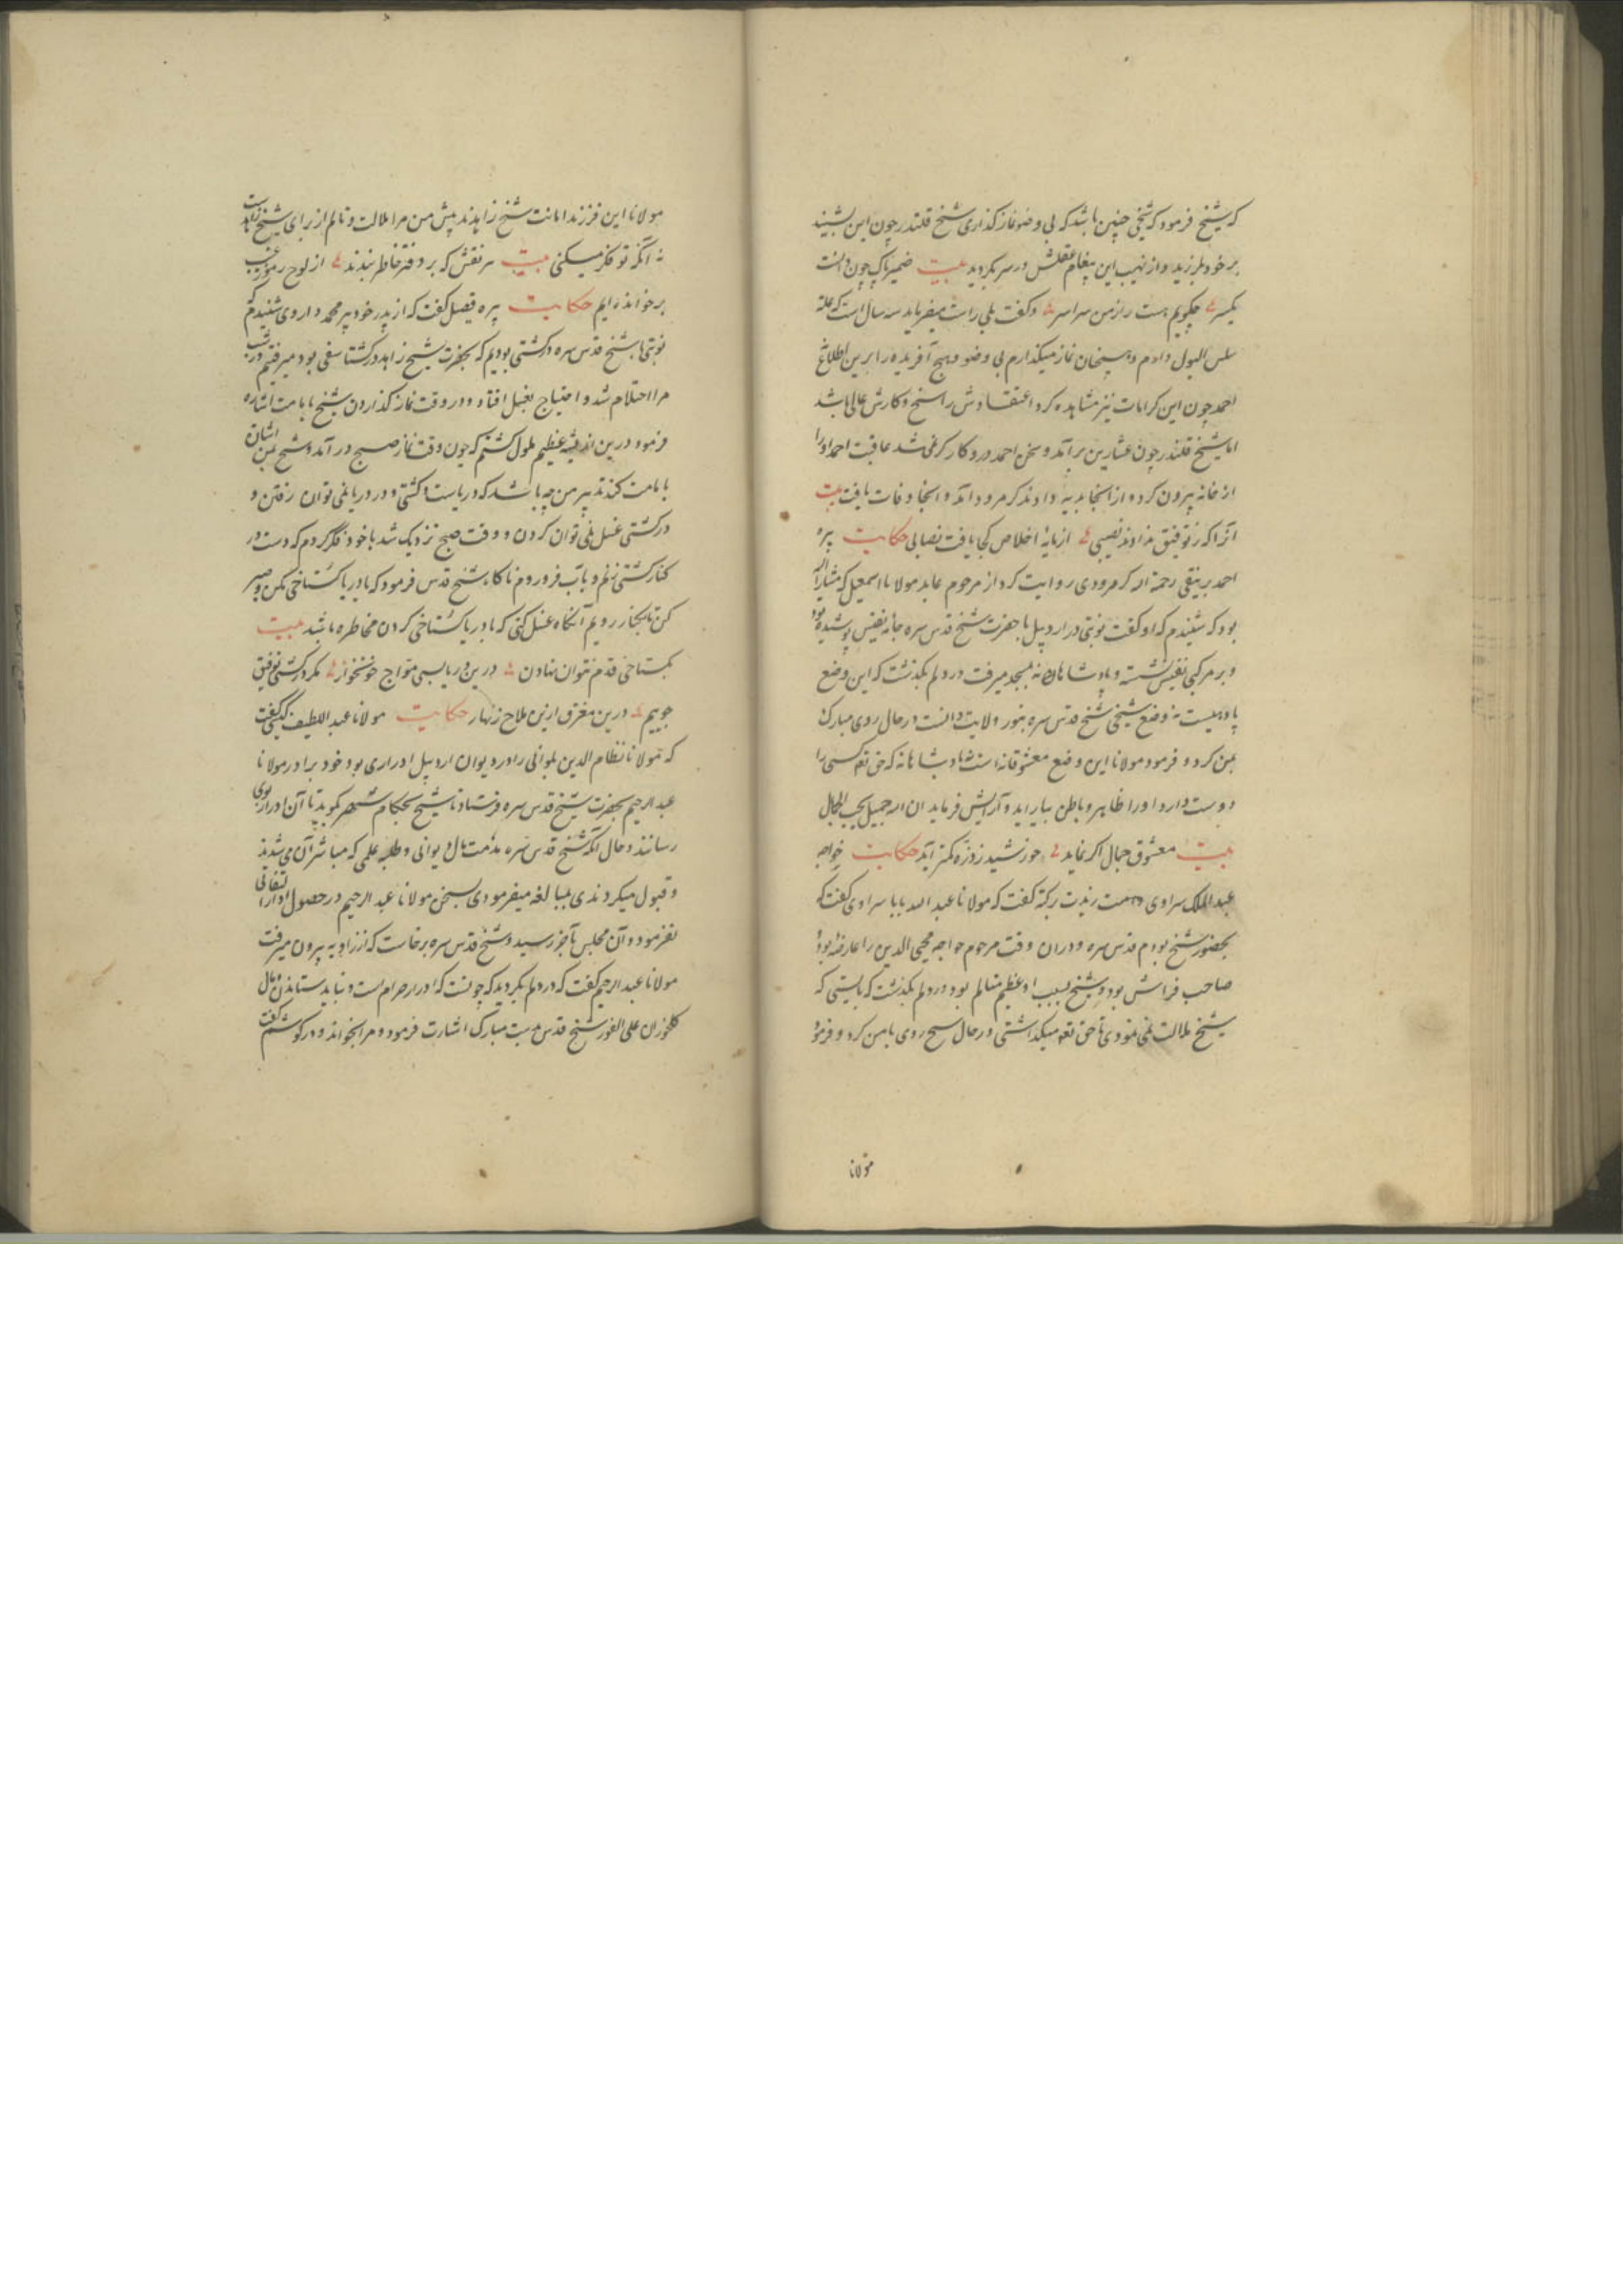 که شیخ فرمود که شیخی چنین باشد که بی وضو نماز گذاری شیخ قلندر چون این بشنید
بر خود بلرزید و از نهیب این پیغام عقلش در سر بگردید بیت ضمیر پاک چون دانست
یکسر چگویم هست راز من سراسر و گفت بلی راست میفرماید سه سال است که علة
سلس البول دارم و همچنان نماز میگذارم بی وضو و هیچ آفریده را برین اطلاع
احمد چون این کرامات نیز مشاهده کرد اعتقادش راسخ و کارش عالی باشد
اما شیخ قلندر چون عثارین برآمد و سخن احمد درو کارگر نمی شد عاقبت احمد او را
از خانه بیرون کرد و از آنجا بدیه داوند کرمرود آمد و آنجا وفات یافت بیت
آنرا که ز توفیق نداوند نصیبی از مایۀ اخلاص کجا یافت نصابی حکایت پیره
احمد برنیقی رحمة الله کرمرودی روایت کرد از مرحوم عابد مولانا اسمعیل که مشار الیه
بود که شنیدم که او گفت نوبتی در اردبیل با حضرت شیخ قدس سره جامۀ نفیس پوشیده بود
و بر مرکبی نفیس نشسته و پادشاهانه بمسجد میرفت در دلم بگذشت که این وضع
پادشاهیست نه وضع شیخی شیخ قدس سره بنور ولایت دانست در حال روی مبارک
بمن کرد و فرمود مولانا این وضع معشوقانه است نه پادشاهانه که حق تعه کسی را
دوست دارد او را ظاهر و باطن بیاراید و آرایش فرماید ان الله جمیل یحب الجمال
بیت معشوق جمال اگر نماید خورشید ز ذره کمتر آید حکایت خواجه
عبد الملک سراوی دامت زیدت برکته گفت که مولانا عبد الله بابا سراوی گفت که
بحضور شیخ بودم قدس سره و دران وقت مرحوم خواجه محیی الدین را عارضه بود و
صاحب فراش بود و شیخ بسبب او عظیم متالم بود و در دلم بگذشت که بایستی که
شیخ ملالت نمی نمودی تا حق تعه میگذاشتی در حال شیخ روی با من کرد و فرمود
مولانا
مولانا این فرزندا امانت شیخ زاهدند پیش من مرا ملالت و تالم از برای شیخ زاهدست
نه آنکه تو فکر میکنی بیت هر نقش که بر دفتر خاطر بندند از لوح رموز غیب
برخوانده ایم حکایت پیره فیصل گفت که از پدر خود پیر محمد داروی شنیدم که
نوبتی با شیخ قدس سره در کشتی بودیم که بحضرت شیخ زاهد در کشتاسفی بود میرفتیم در شب
مرا احتلام شد و احتیاج بغسل افتاد و در وقت نماز گذاردن شیخ با بامت اشاره
فرمود درین اندیشه عظیم ملول گشتم که چون وقت نماز صبح در آمد و شیخ بمن اشارت
بامامت کند تدبیر من چه باشد که دریاست و کشتی و در دریا نمی توان رفتن و
در کشتی غسل نمی توان کردن و وقت صبح نزدیک شد با خود فکر کردم که دست در
کنار کشتی زنم و بآب فرو روم ناگاه شیخ قدس فرمود که با دریا گستاخی مکن و صبر
کن تا بکنار رویم آنگاه غسل کنی که با دریا گستاخی کردن مخاطره باشد بیت
بگستاخی قدم نتوان نهادن درین دریا بسی مواج خونخوار مگر در کشتی توفیق
جوییم درین مغرق ازین ملاح زنهار حکایت مولانا عبد اللطیف گفت
که مولانا نظام الدین یلوانی را در دیوان اردبیل ادراری بود خود برادر مولانا
عبد الرحیم بحضرت شیخ قدس سره فرستاد تا شیخ بحکام شهر گوید تا آن ادرار بوی
رسانند و حال آنکه شیخ قدس سره مذمت مال دیوانی و طلبه علمی که مباشر آن می شدند
و قبول میکردند بمبالغه میفرمودی سخن مولانا عبد الرحیم در حصول ادرار التفاتی
نفرمود و آن مجلس بآخر رسید و شیخ قدس سره برخاست که از زاویه بیرون میرفت
مولانا عبد الرحیم گفت که در دلم بگردید که چونست که ادرار حرام است و نباید ستاندن و مال
کلخوران علی الفور شیخ قدس بدست مبارک اشارت فرمود و مرا بخواند و در گوشم گفت